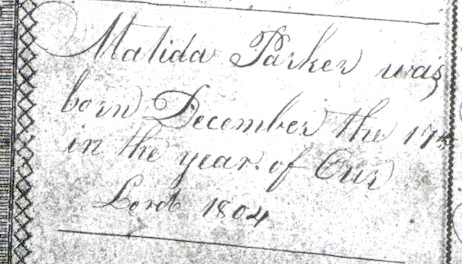 Matida Parker was
born December the 17th
in the year of Our
Lord 1804